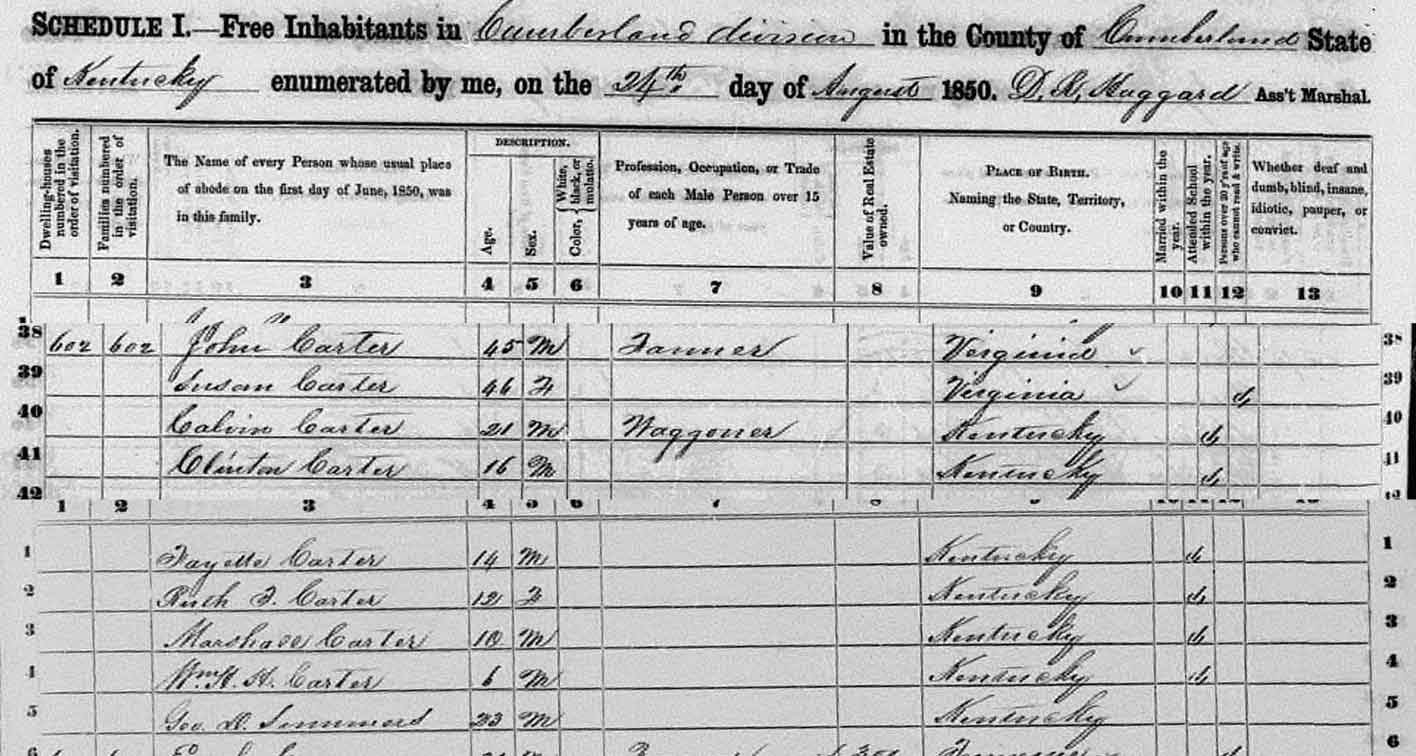 SCHEDULE I.—Free Inhabitants in Cumberland division in the County of Cumberland State
of Kentucky enumerated by me, on the 24th. day of August 1850. D. R. Haggard Ass't Marshal.
Dwelling-houses numbered in the order of visitation.
Families numbered in the order of visitation.
The Name of every Person whose usual place
of abode on the first day of June, 1850, was
in this family.
DESCRIPTION.
Age.
Sex.
Color, White, black, or mulatto.
Profession, Occupation, or Trade
of each Male Person over 15
years of age.
Value of Real Estate owned.
PLACE OF BIRTH.
Naming the State, Territory,
or Country.
Married within the year.
Attended School within the year.
Persons over 20 y'rs of age who cannot read & write.
Whether deaf and
dumb, blind, insane,
idiotic, pauper, or
convict.
1 2 3 4 5 6 7 8 9 10 11 12 13
38 602 602 John Carter 45 M Farmer Virginia 38
39 Susan Carter 46 F Virginia 39
40 Calvin Carter 21 M Waggoner Kentucky 40
41 Clinton Carter 16 M Kentucky 41
42
1 2 3 4 5 6 7 8 9
1 Fayette Carter 14 M Kentucky 1
2 Ruth F. Carter 12 F Kentucky 2
3 Marshall Carter 10 M Kentucky 3
4 Wm. H. H. Carter 6 M Kentucky 4
5 Geo. D. Simmers 23 M Kentucky 5
6 6